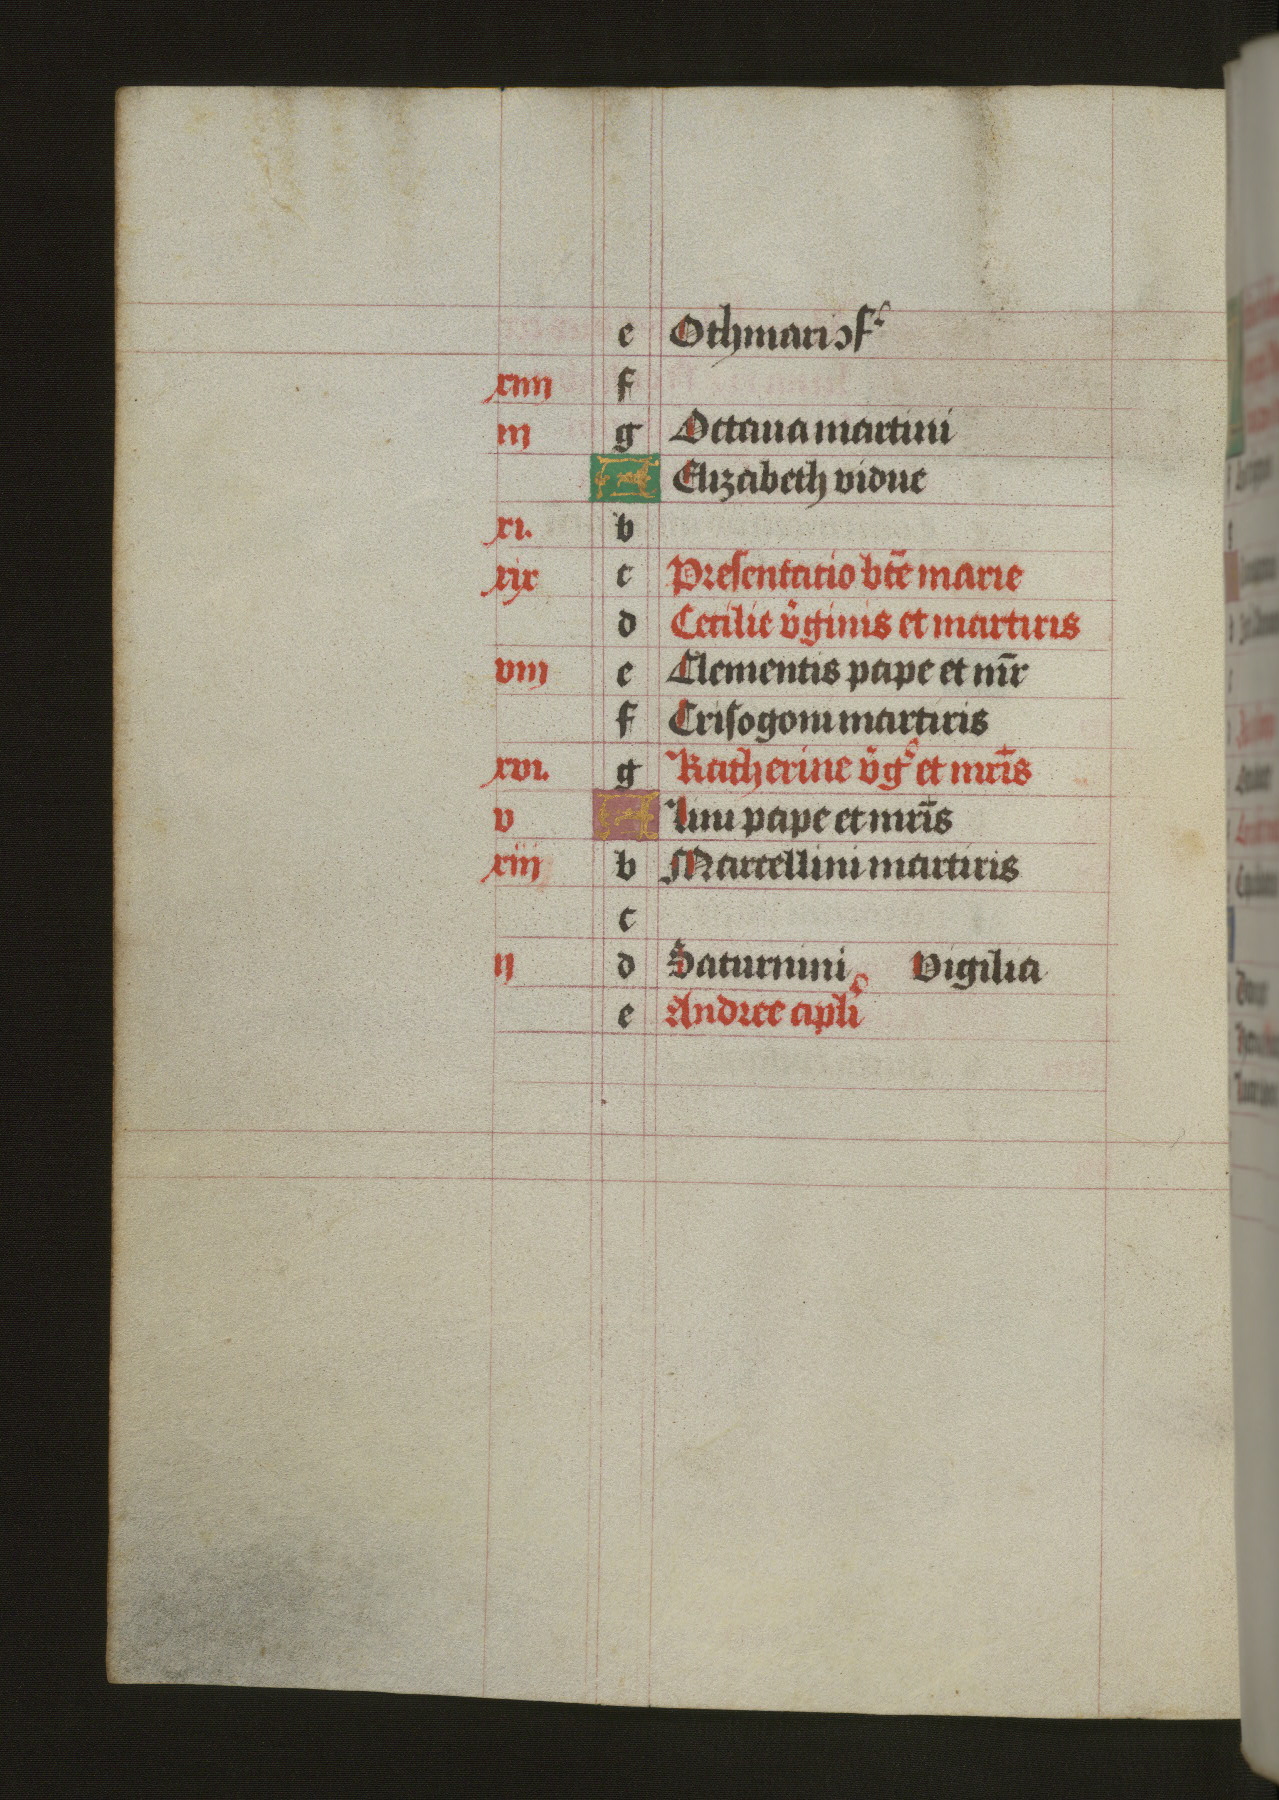 e Othmari ɔf᷒
xiiii f
iij g Octaua martini
A Elizabeth vidue
xi. b
xix c Presentatio btē marie
d Cecilie v̄ginis et martiris
viij e Clementis pape et mr̄
f Crisogoni martiris
xvi. g Katherine v̄g᷒ et mrīs
v A Lini pape et mrīs
xiij b Marcellini martiris
c
ij d Saturnini Vigilia
e Andree apli᷒